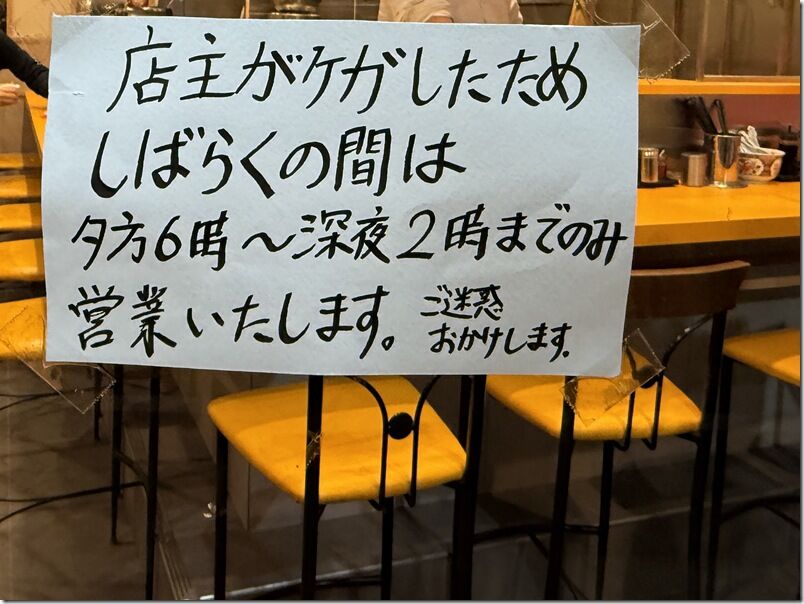 店主がケガしたため
しばらくの間は
夕方6時〜深夜2時までのみ
営業いたします。
ご迷惑
おかけします。